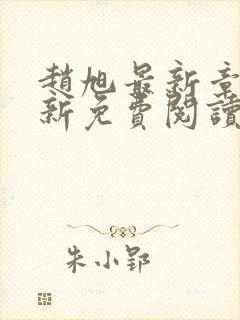 趙旭最新章
新免費閱讀
朱小郢